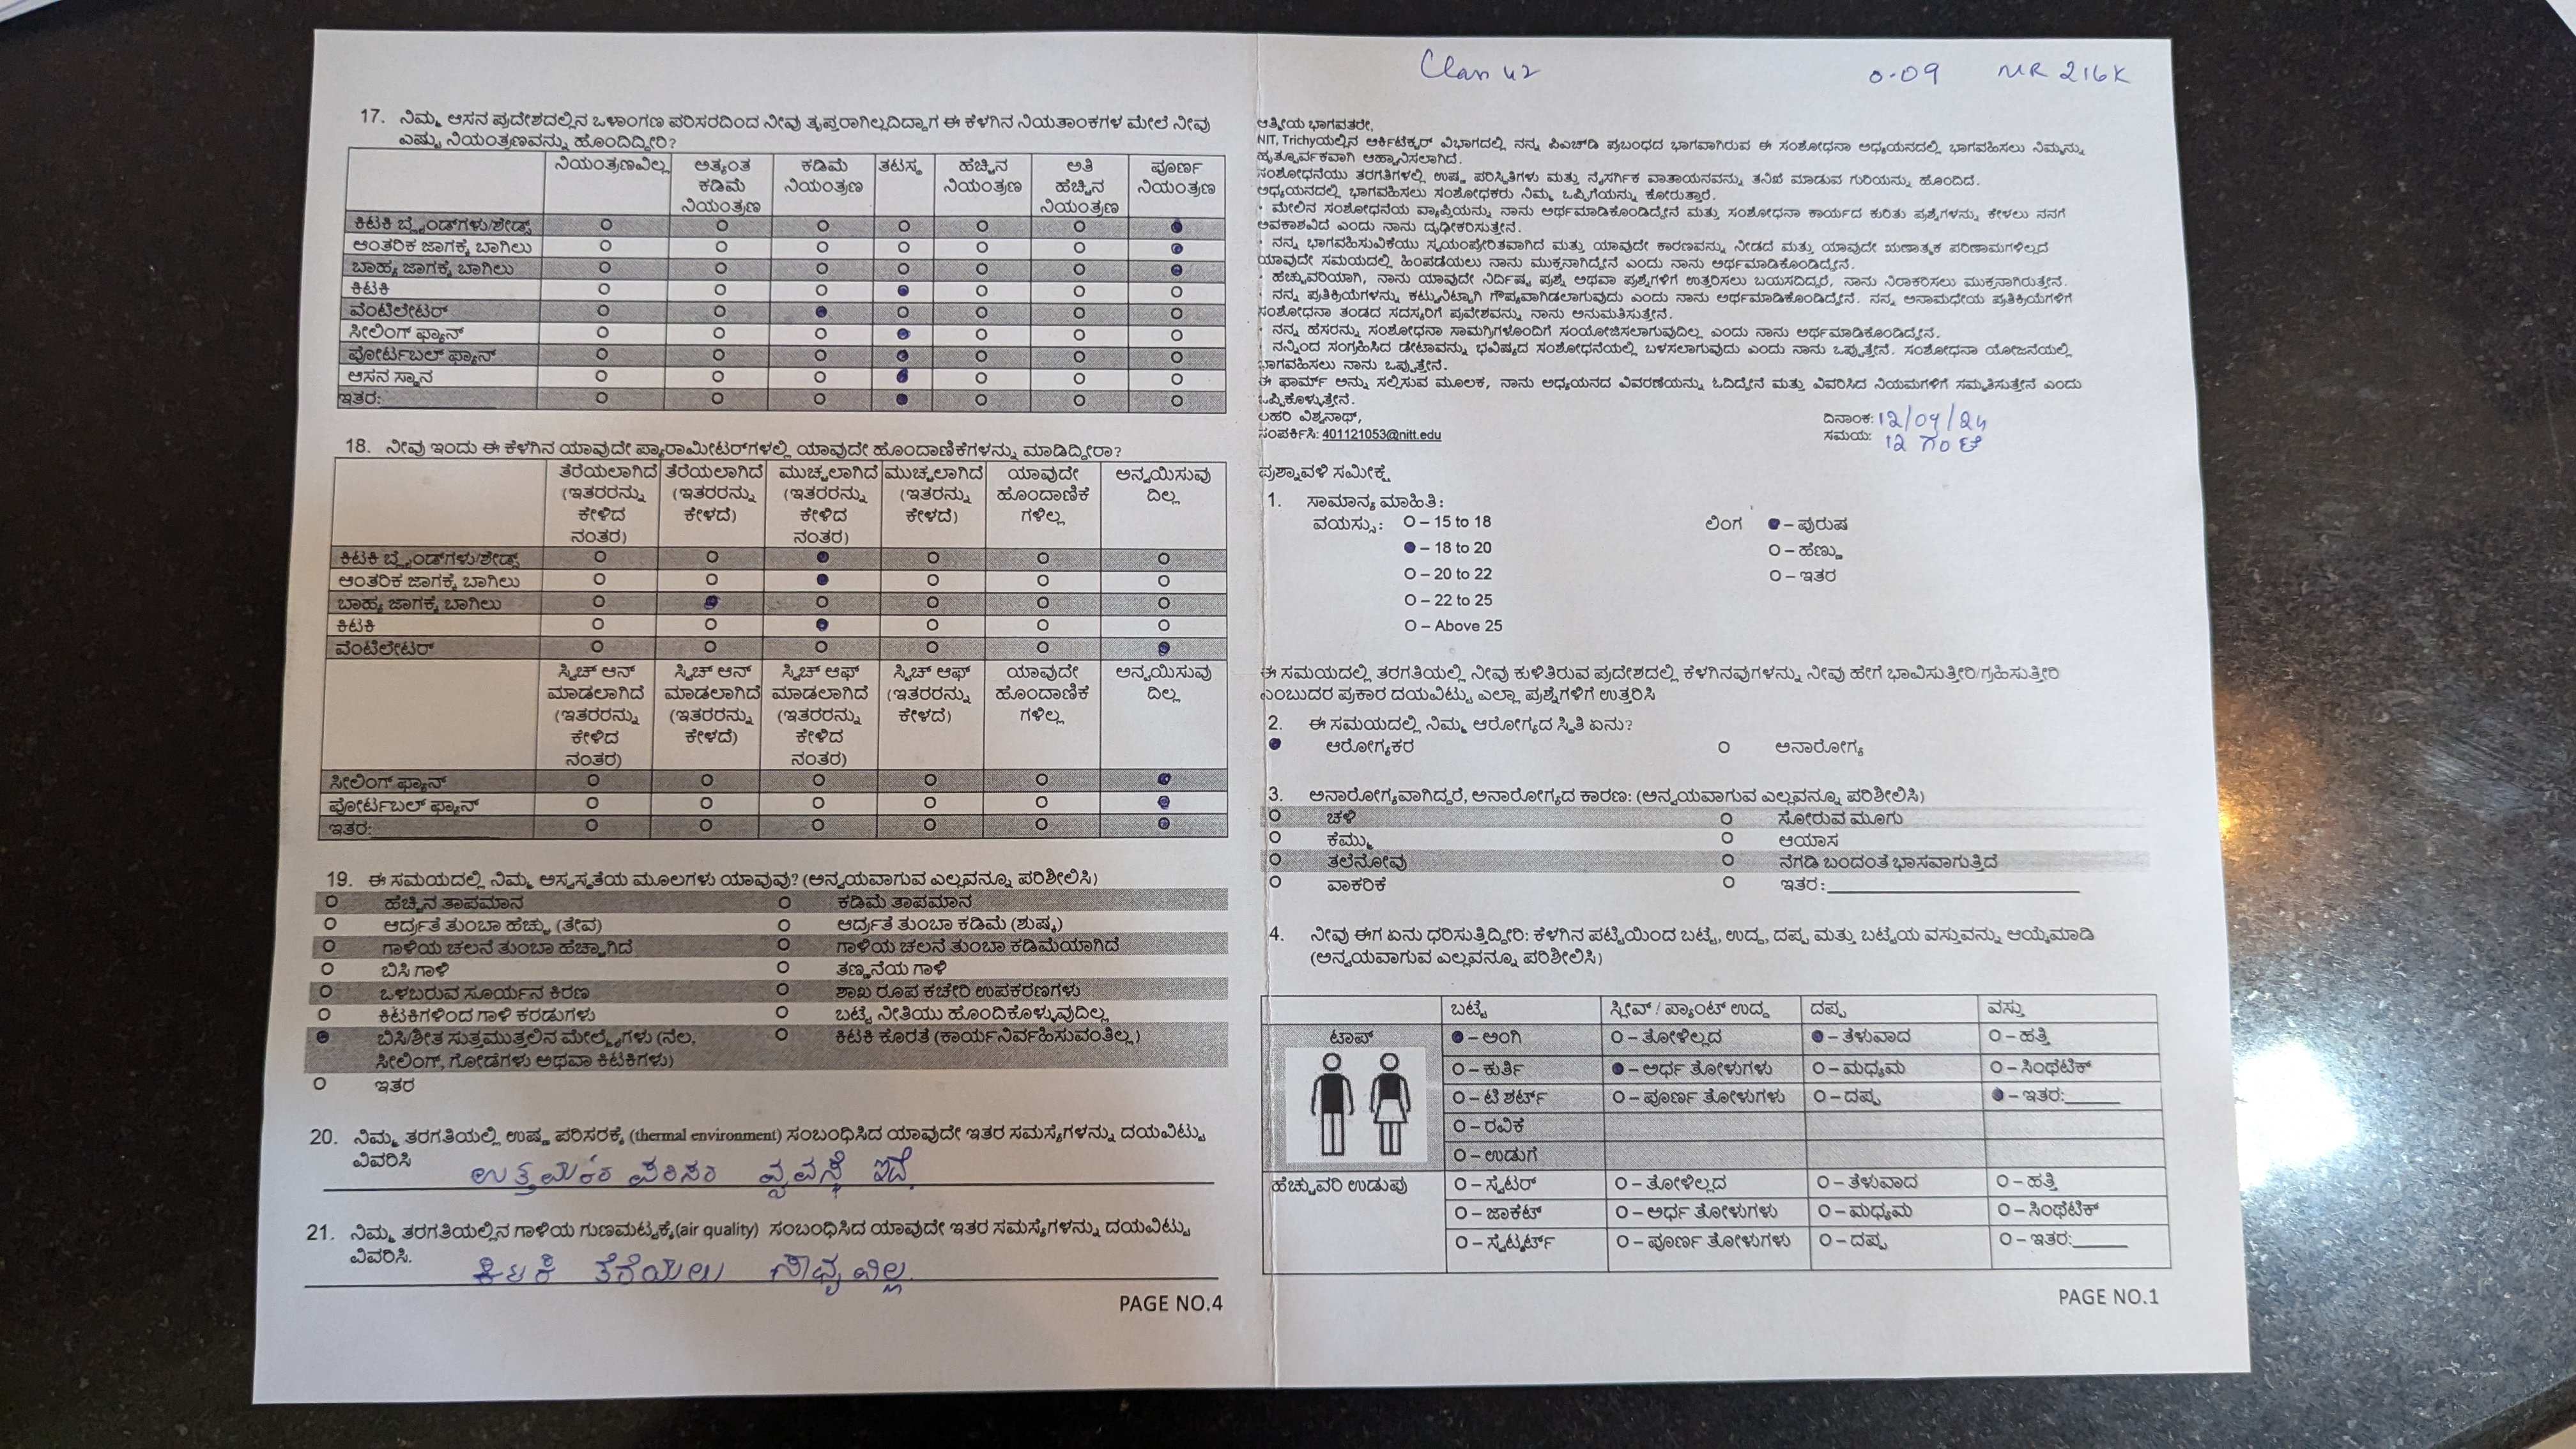 17. ನಿಮ್ಮ ಆಸನ ಪ್ರದೇಶದಲ್ಲಿನ ಒಳಾಂಗಣ ಪರಿಸರದಿಂದ ನೀವು ತೃಪ್ತರಾಗಿಲ್ಲದಿದ್ದಾಗ ಈ ಕೆಳಗಿನ ನಿಯತಾಂಕಗಳ ಮೇಲೆ ನೀವು
ಎಷ್ಟು ನಿಯಂತ್ರಣವನ್ನು ಹೊಂದಿದ್ದೀರಿ?
ನಿಯಂತ್ರಣವಿಲ್ಲ ಅತ್ಯಂತ ಕಡಿಮೆ ನಿಯಂತ್ರಣ ಕಡಿಮೆ ನಿಯಂತ್ರಣ ತಟಸ್ಥ ಹೆಚ್ಚಿನ ನಿಯಂತ್ರಣ ಅತಿ ಹೆಚ್ಚಿನ ನಿಯಂತ್ರಣ ಪೂರ್ಣ ನಿಯಂತ್ರಣ
ಕಿಟಕಿ ಬ್ಲೈಂಡ್‌ಗಳು/ಶೇಡ್ಸ್
ಆಂತರಿಕ ಜಾಗಕ್ಕೆ ಬಾಗಿಲು
ಬಾಹ್ಯ ಜಾಗಕ್ಕೆ ಬಾಗಿಲು
ಕಿಟಕಿ
ವೆಂಟಿಲೇಟರ್
ಸೀಲಿಂಗ್ ಫ್ಯಾನ್
ಪೋರ್ಟಬಲ್ ಫ್ಯಾನ್
ಆಸನ ಸ್ಥಾನ
ಇತರ:
18. ನೀವು ಇಂದು ಈ ಕೆಳಗಿನ ಯಾವುದೇ ಪ್ಯಾರಾಮೀಟರ್‌ಗಳಲ್ಲಿ ಯಾವುದೇ ಹೊಂದಾಣಿಕೆಗಳನ್ನು ಮಾಡಿದ್ದೀರಾ?
ತೆರೆಯಲಾಗಿದೆ (ಇತರರನ್ನು ಕೇಳಿದ ನಂತರ) ತೆರೆಯಲಾಗಿದೆ (ಇತರರನ್ನು ಕೇಳದೆ) ಮುಚ್ಚಲಾಗಿದೆ (ಇತರರನ್ನು ಕೇಳಿದ ನಂತರ) ಮುಚ್ಚಲಾಗಿದೆ (ಇತರರನ್ನು ಕೇಳದೆ) ಯಾವುದೇ ಹೊಂದಾಣಿಕೆ ಗಳಿಲ್ಲ ಅನ್ವಯಿಸುವು ದಿಲ್ಲ
ಕಿಟಕಿ ಬ್ಲೈಂಡ್‌ಗಳು/ಶೇಡ್ಸ್
ಆಂತರಿಕ ಜಾಗಕ್ಕೆ ಬಾಗಿಲು
ಬಾಹ್ಯ ಜಾಗಕ್ಕೆ ಬಾಗಿಲು
ಕಿಟಕಿ
ವೆಂಟಿಲೇಟರ್
ಸ್ವಿಚ್ ಆನ್ ಮಾಡಲಾಗಿದೆ (ಇತರರನ್ನು ಕೇಳಿದ ನಂತರ) ಸ್ವಿಚ್ ಆನ್ ಮಾಡಲಾಗಿದೆ (ಇತರರನ್ನು ಕೇಳದೆ) ಸ್ವಿಚ್ ಆಫ್ ಮಾಡಲಾಗಿದೆ (ಇತರರನ್ನು ಕೇಳಿದ ನಂತರ) ಸ್ವಿಚ್ ಆಫ್ (ಇತರರನ್ನು ಕೇಳದೆ) ಯಾವುದೇ ಹೊಂದಾಣಿಕೆ ಗಳಿಲ್ಲ ಅನ್ವಯಿಸುವು ದಿಲ್ಲ
ಸೀಲಿಂಗ್ ಫ್ಯಾನ್
ಪೋರ್ಟಬಲ್ ಫ್ಯಾನ್
ಇತರ:
19. ಈ ಸಮಯದಲ್ಲಿ ನಿಮ್ಮ ಅಸ್ವಸ್ಥತೆಯ ಮೂಲಗಳು ಯಾವುವು? (ಅನ್ವಯವಾಗುವ ಎಲ್ಲವನ್ನೂ ಪರಿಶೀಲಿಸಿ)
ಹೆಚ್ಚಿನ ತಾಪಮಾನ ಕಡಿಮೆ ತಾಪಮಾನ
ಆರ್ದ್ರತೆ ತುಂಬಾ ಹೆಚ್ಚು (ತೇವ) ಆರ್ದ್ರತೆ ತುಂಬಾ ಕಡಿಮೆ (ಶುಷ್ಕ)
ಗಾಳಿಯ ಚಲನೆ ತುಂಬಾ ಹೆಚ್ಚಾಗಿದೆ ಗಾಳಿಯ ಚಲನೆ ತುಂಬಾ ಕಡಿಮೆಯಾಗಿದೆ
ಬಿಸಿ ಗಾಳಿ ತಣ್ಣನೆಯ ಗಾಳಿ
ಒಳಬರುವ ಸೂರ್ಯನ ಕಿರಣ ಶಾಖ ರೂಪ ಕಚೇರಿ ಉಪಕರಣಗಳು
ಕಿಟಕಿಗಳಿಂದ ಗಾಳಿ ಕರಡುಗಳು ಬಟ್ಟೆ ನೀತಿಯು ಹೊಂದಿಕೊಳ್ಳುವುದಿಲ್ಲ
ಬಿಸಿ/ಶೀತ ಸುತ್ತಮುತ್ತಲಿನ ಮೇಲ್ಮೈಗಳು (ನೆಲ, ಕಿಟಕಿ ಕೊರತೆ (ಕಾರ್ಯನಿರ್ವಹಿಸುವಂತಿಲ್ಲ)
ಸೀಲಿಂಗ್, ಗೋಡೆಗಳು ಅಥವಾ ಕಿಟಕಿಗಳು)
ಇತರ
20. ನಿಮ್ಮ ತರಗತಿಯಲ್ಲಿ ಉಷ್ಣ ಪರಿಸರಕ್ಕೆ (thermal environment) ಸಂಬಂಧಿಸಿದ ಯಾವುದೇ ಇತರ ಸಮಸ್ಯೆಗಳನ್ನು ದಯವಿಟ್ಟು
ವಿವರಿಸಿ ಉತ್ತಮಕರ ಪರಿಸರ ವ್ಯವಸ್ಥೆ ಇದೆ.
21. ನಿಮ್ಮ ತರಗತಿಯಲ್ಲಿನ ಗಾಳಿಯ ಗುಣಮಟ್ಟಕ್ಕೆ(air quality) ಸಂಬಂಧಿಸಿದ ಯಾವುದೇ ಇತರ ಸಮಸ್ಯೆಗಳನ್ನು ದಯವಿಟ್ಟು
ವಿವರಿಸಿ. ಕಿಟಕಿ ತೆರೆಯಲು ಸಾಧ್ಯವಿಲ್ಲ.
PAGE NO.4
Class 42 0-09 MR 216K
ಆತ್ಮೀಯ ಭಾಗವತರೇ,
NIT, Trichyಯಲ್ಲಿನ ಆರ್ಕಿಟೆಕ್ಚರ್ ವಿಭಾಗದಲ್ಲಿ ನನ್ನ ಪಿಎಚ್‌ಡಿ ಪ್ರಬಂಧದ ಭಾಗವಾಗಿರುವ ಈ ಸಂಶೋಧನಾ ಅಧ್ಯಯನದಲ್ಲಿ ಭಾಗವಹಿಸಲು ನಿಮ್ಮನ್ನು
ಹೃತ್ಪೂರ್ವಕವಾಗಿ ಆಹ್ವಾನಿಸಲಾಗಿದೆ.
ಸಂಶೋಧನೆಯು ತರಗತಿಗಳಲ್ಲಿ ಉಷ್ಣ ಪರಿಸ್ಥಿತಿಗಳು ಮತ್ತು ನೈಸರ್ಗಿಕ ವಾತಾಯನವನ್ನು ತನಿಖೆ ಮಾಡುವ ಗುರಿಯನ್ನು ಹೊಂದಿದೆ.
ಅಧ್ಯಯನದಲ್ಲಿ ಭಾಗವಹಿಸಲು ಸಂಶೋಧಕರು ನಿಮ್ಮ ಒಪ್ಪಿಗೆಯನ್ನು ಕೋರುತ್ತಾರೆ.
• ಮೇಲಿನ ಸಂಶೋಧನೆಯ ವ್ಯಾಪ್ತಿಯನ್ನು ನಾನು ಅರ್ಥಮಾಡಿಕೊಂಡಿದ್ದೇನೆ ಮತ್ತು ಸಂಶೋಧನಾ ಕಾರ್ಯದ ಕುರಿತು ಪ್ರಶ್ನೆಗಳನ್ನು ಕೇಳಲು ನನಗೆ
ಅವಕಾಶವಿದೆ ಎಂದು ನಾನು ದೃಢೀಕರಿಸುತ್ತೇನೆ.
• ನನ್ನ ಭಾಗವಹಿಸುವಿಕೆಯು ಸ್ವಯಂಪ್ರೇರಿತವಾಗಿದೆ ಮತ್ತು ಯಾವುದೇ ಕಾರಣವನ್ನು ನೀಡದೆ ಮತ್ತು ಯಾವುದೇ ಋಣಾತ್ಮಕ ಪರಿಣಾಮಗಳಿಲ್ಲದೆ
ಯಾವುದೇ ಸಮಯದಲ್ಲಿ ಹಿಂಪಡೆಯಲು ನಾನು ಮುಕ್ತನಾಗಿದ್ದೇನೆ ಎಂದು ನಾನು ಅರ್ಥಮಾಡಿಕೊಂಡಿದ್ದೇನೆ.
• ಹೆಚ್ಚುವರಿಯಾಗಿ, ನಾನು ಯಾವುದೇ ನಿರ್ದಿಷ್ಟ ಪ್ರಶ್ನೆ ಅಥವಾ ಪ್ರಶ್ನೆಗಳಿಗೆ ಉತ್ತರಿಸಲು ಬಯಸದಿದ್ದರೆ, ನಾನು ನಿರಾಕರಿಸಲು ಮುಕ್ತನಾಗಿರುತ್ತೇನೆ.
• ನನ್ನ ಪ್ರತಿಕ್ರಿಯೆಗಳನ್ನು ಕಟ್ಟುನಿಟ್ಟಾಗಿ ಗೌಪ್ಯವಾಗಿಡಲಾಗುವುದು ಎಂದು ನಾನು ಅರ್ಥಮಾಡಿಕೊಂಡಿದ್ದೇನೆ. ನನ್ನ ಅನಾಮಧೇಯ ಪ್ರತಿಕ್ರಿಯೆಗಳಿಗೆ
ಸಂಶೋಧನಾ ತಂಡದ ಸದಸ್ಯರಿಗೆ ಪ್ರವೇಶವನ್ನು ನಾನು ಅನುಮತಿಸುತ್ತೇನೆ.
• ನನ್ನ ಹೆಸರನ್ನು ಸಂಶೋಧನಾ ಸಾಮಗ್ರಿಗಳೊಂದಿಗೆ ಸಂಯೋಜಿಸಲಾಗುವುದಿಲ್ಲ ಎಂದು ನಾನು ಅರ್ಥಮಾಡಿಕೊಂಡಿದ್ದೇನೆ.
• ನನ್ನಿಂದ ಸಂಗ್ರಹಿಸಿದ ಡೇಟಾವನ್ನು ಭವಿಷ್ಯದ ಸಂಶೋಧನೆಯಲ್ಲಿ ಬಳಸಲಾಗುವುದು ಎಂದು ನಾನು ಒಪ್ಪುತ್ತೇನೆ. ಸಂಶೋಧನಾ ಯೋಜನೆಯಲ್ಲಿ
ಭಾಗವಹಿಸಲು ನಾನು ಒಪ್ಪುತ್ತೇನೆ.
ಈ ಫಾರ್ಮ್ ಅನ್ನು ಸಲ್ಲಿಸುವ ಮೂಲಕ, ನಾನು ಅಧ್ಯಯನದ ವಿವರಣೆಯನ್ನು ಓದಿದ್ದೇನೆ ಮತ್ತು ವಿವರಿಸಿದ ನಿಯಮಗಳಿಗೆ ಸಮ್ಮತಿಸುತ್ತೇನೆ ಎಂದು
ಒಪ್ಪಿಕೊಳ್ಳುತ್ತೇನೆ.
ಲಹರಿ ವಿಶ್ವನಾಥ್, ದಿನಾಂಕ: 12/09/24
ಸಂಪರ್ಕಿಸಿ: 401121053@nitt.edu ಸಮಯ: 12 ಗಂಟೆ
ಪ್ರಶ್ನಾವಳಿ ಸಮೀಕ್ಷೆ
1. ಸಾಮಾನ್ಯ ಮಾಹಿತಿ:
ವಯಸ್ಸು: O – 15 to 18 ಲಿಂಗ – ಪುರುಷ
– 18 to 20 O – ಹೆಣ್ಣು
O – 20 to 22 O – ಇತರ
O – 22 to 25
O – Above 25
ಈ ಸಮಯದಲ್ಲಿ ತರಗತಿಯಲ್ಲಿ ನೀವು ಕುಳಿತಿರುವ ಪ್ರದೇಶದಲ್ಲಿ ಕೆಳಗಿನವುಗಳನ್ನು ನೀವು ಹೇಗೆ ಭಾವಿಸುತ್ತೀರಿ/ಗ್ರಹಿಸುತ್ತೀರಿ
ಎಂಬುದರ ಪ್ರಕಾರ ದಯವಿಟ್ಟು ಎಲ್ಲಾ ಪ್ರಶ್ನೆಗಳಿಗೆ ಉತ್ತರಿಸಿ
2. ಈ ಸಮಯದಲ್ಲಿ ನಿಮ್ಮ ಆರೋಗ್ಯದ ಸ್ಥಿತಿ ಏನು?
ಆರೋಗ್ಯಕರ ಅನಾರೋಗ್ಯ
3. ಅನಾರೋಗ್ಯವಾಗಿದ್ದರೆ, ಅನಾರೋಗ್ಯದ ಕಾರಣ: (ಅನ್ವಯವಾಗುವ ಎಲ್ಲವನ್ನೂ ಪರಿಶೀಲಿಸಿ)
ಚಳಿ ಸೋರುವ ಮೂಗು
ಕೆಮ್ಮು ಆಯಾಸ
ತಲೆನೋವು ನೆಗಡಿ ಬಂದಂತೆ ಭಾಸವಾಗುತ್ತಿದೆ
ವಾಕರಿಕೆ ಇತರ:
4. ನೀವು ಈಗ ಏನು ಧರಿಸುತ್ತಿದ್ದೀರಿ: ಕೆಳಗಿನ ಪಟ್ಟಿಯಿಂದ ಬಟ್ಟೆ, ಉದ್ದ, ದಪ್ಪ ಮತ್ತು ಬಟ್ಟೆಯ ವಸ್ತುವನ್ನು ಆಯ್ಕೆಮಾಡಿ
(ಅನ್ವಯವಾಗುವ ಎಲ್ಲವನ್ನೂ ಪರಿಶೀಲಿಸಿ)
ಬಟ್ಟೆ ಸ್ಲೀವ್ / ಪ್ಯಾಂಟ್ ಉದ್ದ ದಪ್ಪ ವಸ್ತು
ಟಾಪ್ – ಅಂಗಿ O – ತೋಳಿಲ್ಲದ – ತೆಳುವಾದ O – ಹತ್ತಿ
O – ಕುರ್ತಿ – ಅರ್ಧ ತೋಳುಗಳು O – ಮಧ್ಯಮ O – ಸಿಂಥೆಟಿಕ್
O – ಟಿ ಶರ್ಟ್ O – ಪೂರ್ಣ ತೋಳುಗಳು O – ದಪ್ಪ – ಇತರ:
O – ರವಿಕೆ
O – ಉಡುಗೆ
ಹೆಚ್ಚುವರಿ ಉಡುಪು O – ಸ್ವೆಟರ್ O – ತೋಳಿಲ್ಲದ O – ತೆಳುವಾದ O – ಹತ್ತಿ
O – ಜಾಕೆಟ್ O – ಅರ್ಧ ತೋಳುಗಳು O – ಮಧ್ಯಮ O – ಸಿಂಥೆಟಿಕ್
O – ಸ್ವೆಟ್ಶರ್ಟ್ O – ಪೂರ್ಣ ತೋಳುಗಳು O – ದಪ್ಪ O – ಇತರ:
PAGE NO.1